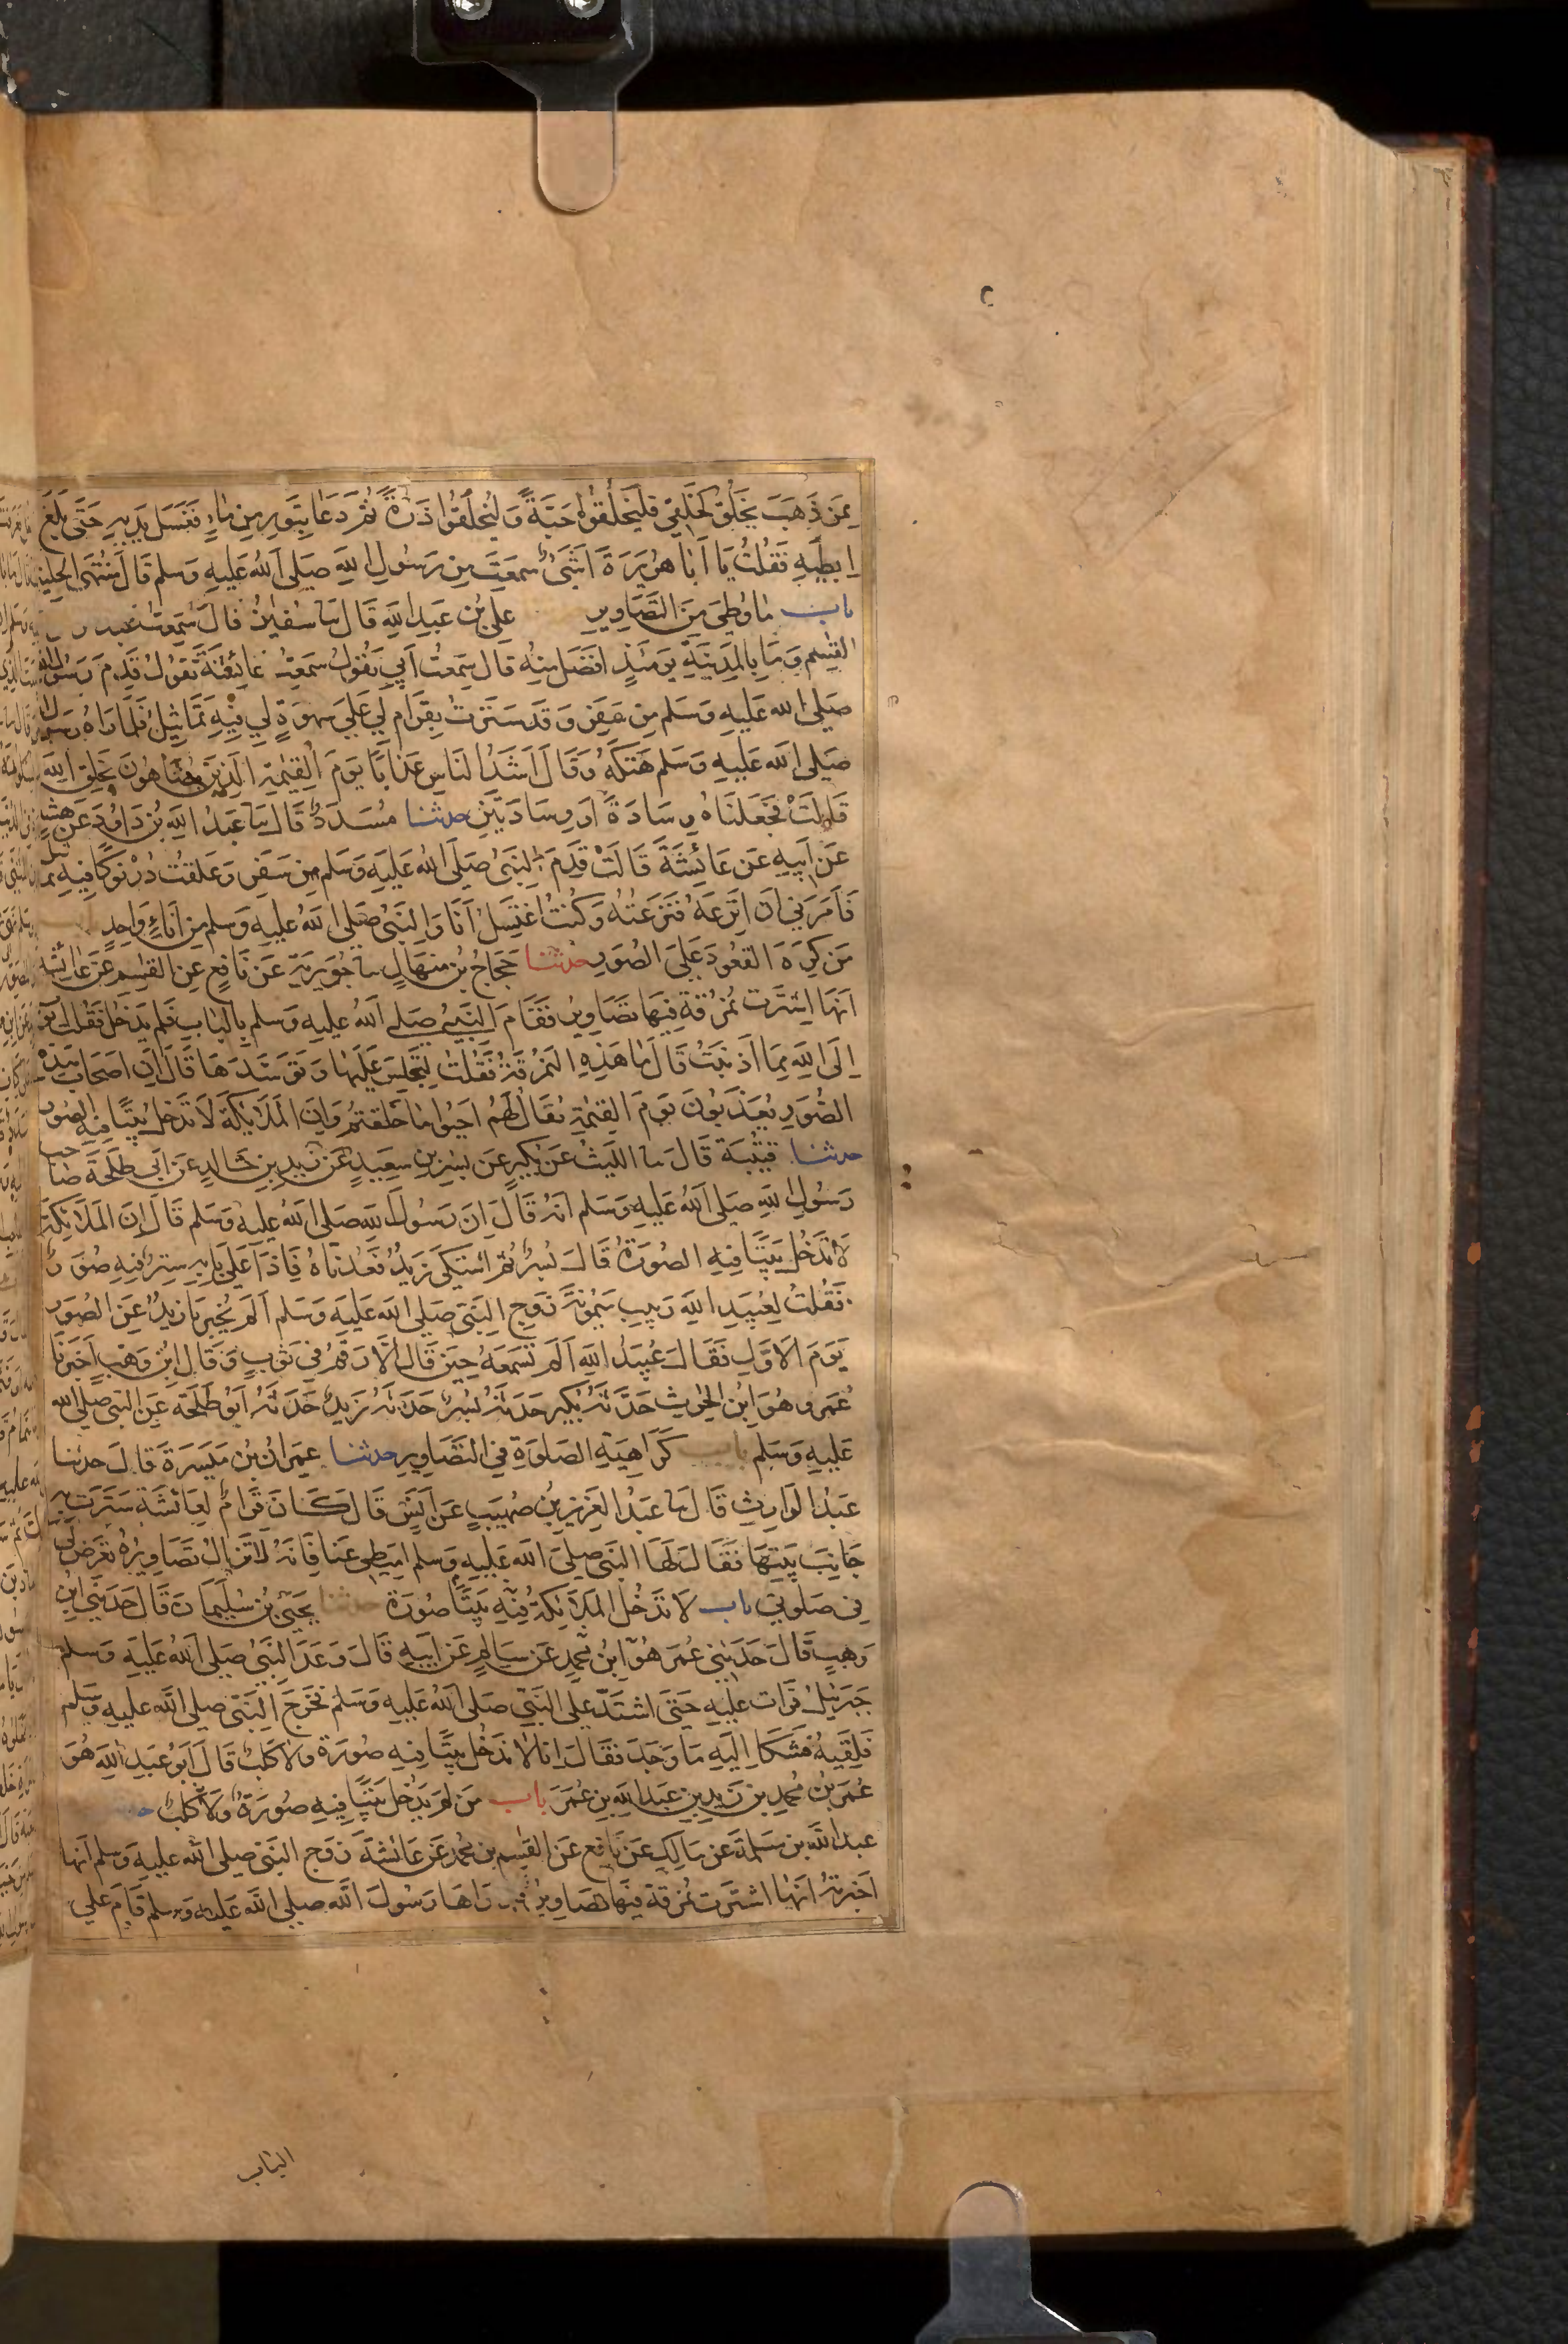 مِمَّن ذَهَبَ يَخلُقُ كَخَلقِي فَليَخلُقُوا حَبَّةً وَليَخلُقُوا ذَرَّةً ثُمَّ دَعَا بِتَورٍ مِن مَاءٍ فَغَسَلَ يَدَيهِ حَتَّى بَلَغَ
اِبطَيهِ فَقُلتُ يَا اَبَا هُرَيرَةَ اَشَيءٌ سَمِعتَ مِن رَسُولِ اللهِ صَلَّى اللهُ عَلَيهِ وَسَلَّم قَالَ مُنتَهَى الحِليَةِ
باب مَا وُطِئَ مِنَ التَّصَاوِيرِ عَلِيُّ بنُ عَبدِ اللهِ قَالَ سا سُفيٰنُ قَالَ سَمِعتُ عبد
القٰسِم وَمَا بِالمَدِينَةِ يَومَئِذٍ اَفضَلُ مِنهُ قَالَ سَمِعتُ اَبِي يَقُولُ سَمِعتُ عَائِشَةَ تَقُولُ قَدِمَ رَسُولُ اللهِ
صَلَّى اللهُ عَلَيهِ وَسَلَّم مِن سَفَرٍ وَقَد سَتَرتُ بِقِرَامٍ لِي عَلَى سَهوَةٍ لِي فِيهِ تَمَاثِيلُ فَلَمَّا رَاهُ رَسُولُ
صَلَّى اللهُ عَلَيهِ وَسَلَّم هَتَكَهُ وَقَالَ اَشَدُّ النَّاسِ عَذَابًا يَومَ القِيٰمَةِ الَّذِينَ يُضَاهُونَ بِخَلقِ اللهِ
قَالَت فَجَعَلنَاهُ وِسَادَةً اَو وِسَادَتَينِ حدثنا مُسَدَّدٌ قَالَ سا عَبدُ اللهِ بنُ دَاوُدَ عَن هِشَامٍ
عَن اَبِيهِ عَن عَائِشَةَ قَالَت قَدِمَ النَّبِيُّ صَلَّى اللهُ عَلَيهِ وَسَلَّم مِن سَفَرٍ وَعَلَّقتُ دُرنُوكًا فِيهِ تماثيل
فَاَمَرَنِي اَن اَنزِعَهُ فَنَزَعتُهُ وَكُنتُ اَغتَسِلُ اَنَا وَالنَّبِيُّ صَلَّى اللهُ عَلَيهِ وَسَلَّم مِن اِنَاءٍ وَاحِدٍ
مَن كَرِهَ القُعُودَ عَلَى الصُّوَرِ حدثنا حَجَّاجُ بنُ مِنهَالٍ سا جُوَيرِيَةُ عَن نَافِعٍ عَنِ القٰسِمِ عَن عَائِشَةَ
اَنَّهَا اشتَرَت نُمرُقَةً فِيهَا تَصَاوِيرُ فَقَامَ النَّبِيُّ صَلَّى اللهُ عَلَيهِ وَسَلَّم بِالبَابِ فَلَم يَدخُل فَقُلتُ اَتُوبُ
اِلَى اللهِ مِمَّا اَذنَبتُ قَالَ مَا هٰذِهِ النُّمرُقَةُ فَقُلتُ لِتَجلِسَ عَلَيهَا وَتَوَسَّدَهَا قَالَ اِنَّ اَصحَابَ هٰذِهِ
الصُّوَرِ يُعَذَّبُونَ يَومَ القِيٰمَةِ يُقَالُ لَهُم اَحيُوا مَا خَلَقتُم وَاِنَّ المَلَائِكَةَ لَا تَدخُلُ بَيتًا فِيهِ الصُّوَر
حدثنا قُتَيبَةُ قَالَ سا اللَّيثُ عَن بُكَيرٍ عَن بُسرِ بنِ سَعِيدٍ عَن زَيدِ بنِ خَالِدٍ عَن اَبِي طَلحَةَ صاحب
رَسُولِ اللهِ صَلَّى اللهُ عَلَيهِ وَسَلَّم اَنَّهُ قَالَ اِنَّ رَسُولَ اللهِ صَلَّى اللهُ عَلَيهِ وَسَلَّم قَالَ اِنَّ المَلَائِكَةَ
لَا تَدخُلُ بَيتًا فِيهِ الصُّورَةُ قَالَ بُسرٌ ثُمَّ اشتَكَى زَيدٌ فَعُدنَاهُ فَاِذَا عَلَى بَابِهِ سِترٌ فِيهِ صُورَةٌ
فَقُلتُ لِعُبَيدِ اللهِ رَبِيبِ مَيمُونَةَ زَوجِ النَّبِيِّ صَلَّى اللهُ عَلَيهِ وَسَلَّم اَلَم يُخبِرنَا زَيدٌ عَنِ الصُّوَرِ
يَومَ الاَوَّلِ فَقَالَ عُبَيدُ اللهِ اَلَم تَسمَعهُ حِينَ قَالَ اِلَّا رَقمٌ فِي ثَوبٍ وَقَالَ ابنُ وَهبٍ اَخبَرَنَا
عَمرٌو هُوَ ابنُ الحٰرِثِ حَدَّثَهُ بُكَيرٌ حَدَّثَهُ بُسرٌ حَدَّثَهُ زَيدٌ حَدَّثَهُ اَبُو طَلحَةَ عَنِ النَّبِيِّ صَلَّى اللهُ
عَلَيهِ وَسَلَّم باب كَرَاهِيَةِ الصَّلٰوةِ فِي التَّصَاوِيرِ حدثنا عِمرَانُ بنُ مَيسَرَةَ قَالَ حدثنا
عَبدُ الوَارِثِ قَالَ سا عَبدُ العَزِيزِ بنُ صُهَيبٍ عَن اَنَسٍ قَالَ كَانَ قِرَامٌ لِعَائِشَةَ سَتَرَت بِهِ
جَانِبَ بَيتِهَا فَقَالَ لَهَا النَّبِيُّ صَلَّى اللهُ عَلَيهِ وَسَلَّم اَمِيطِي عَنَّا فَاِنَّهُ لَا تَزَالُ تَصَاوِيرُهُ تَعرِضُ لِي
فِي صَلٰوتِي باب لَا تَدخُلُ المَلَائِكَةُ فِيهِ بَيتًا صُورَة حدثنا يَحيَى بنُ سُلَيمَانَ قَالَ حَدَّثَنِي ابنُ
وَهبٍ قَالَ حَدَّثَنِي عُمَر هُوَ ابنُ مُحَمَّدٍ عَن سَالِمٍ عَن اَبِيهِ قَالَ وَعَدَ النَّبِيَّ صَلَّى اللهُ عَلَيهِ وَسَلَّم
جِبرَئِيلُ فَرَاثَ عَلَيهِ حَتَّى اشتَدَّ عَلَى النَّبِيِّ صَلَّى اللهُ عَلَيهِ وَسَلَّم فَخَرَجَ النَّبِيُّ صَلَّى اللهُ عَلَيهِ وَسَلَّم
فَلَقِيَهُ فَشَكَا اِلَيهِ مَا وَجَدَ فَقَالَ اِنَّا لَا نَدخُلُ بَيتًا فِيهِ صُورَة وَلَا كَلبٌ قَالَ اَبُو عَبدِ اللهِ هُوَ
عُمَرُ بنُ مُحَمَّدِ بنِ زَيدِ بنِ عَبدِ اللهِ بنِ عُمَرَ باب مَن لَم يَدخُل بَيتًا فِيهِ صُورَةٌ وَلَا كَلبٌ
عبد الله بن مَسلَمَةَ عَن مَالِكٍ عَن نَافِعٍ عَنِ القٰسِمِ بنِ مُحَمَّدٍ عَن عَائِشَةَ زَوجِ النَّبِيِّ صَلَّى اللهُ عَلَيهِ وَسَلَّم اَنَّهَا
اَخبَرَتهُ اَنَّهَا اشتَرَت نُمرُقَةً فِيهَا تَصَاوِيرُ رَاهَا رَسُولُ اللهِ صَلَّى اللهُ عَلَيهِ وَسَلَّم قَامَ عَلَى
الباب